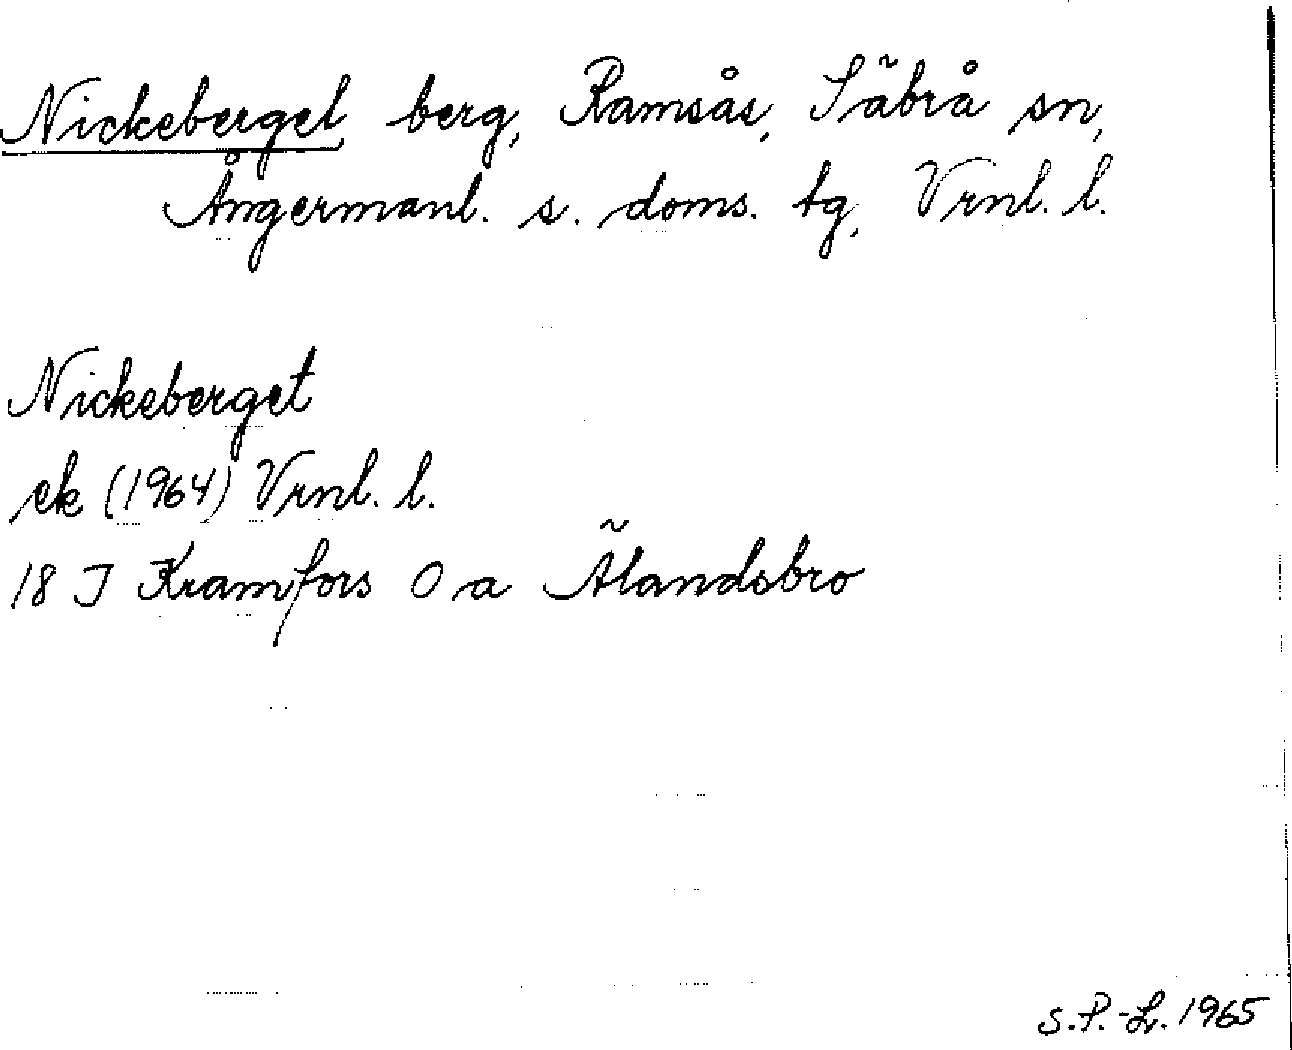 Nickeberget, berg, Ramsås, Säbrå sn,
Ångermanl. s. doms. tg, Vrnl. l.
Nickeberget
ek (1964) Vrnl. l.
18 I Kramfors O a Älandsbro
S.P.-L. 1965